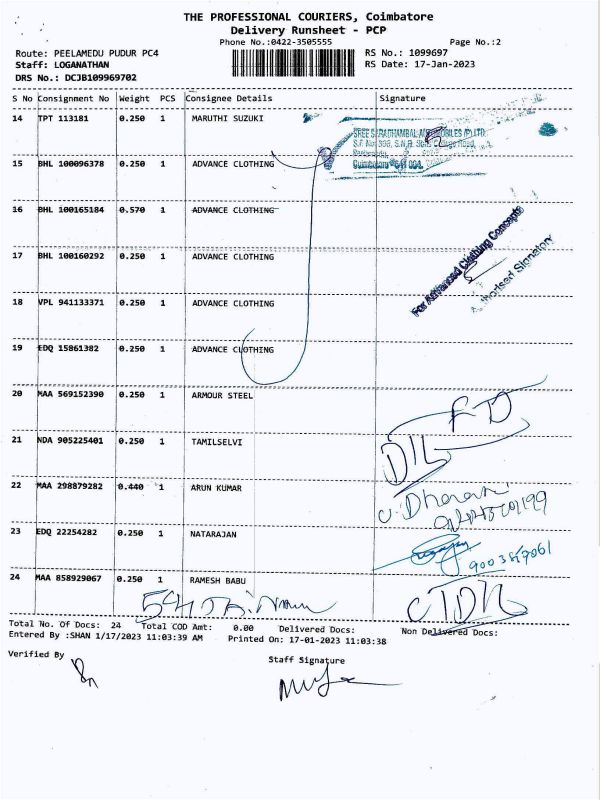 THE PROFESSIONAL COURIERS, Coimbatore
Delivery Runsheet - PCP
Phone No.:0422-3505555 Page No.:2
Route: PEELAMEDU PUDUR PC4 RS No.: 1099697
Staff: LOGANATHAN RS Date: 17-Jan-2023
DRS No.: DCJB109969702
S No Consignment No Weight PCS Consignee Details Signature
14 TPT 113181 0.250 1 MARUTHI SUZUKI
15 BHL 100096378 0.250 1 ADVANCE CLOTHING
16 BHL 100165184 0.570 1 ADVANCE CLOTHING
17 BHL 100160292 0.250 1 ADVANCE CLOTHING
For Advanced Clothing Concepts
Authorised Signatory
18 VPL 941133371 0.250 1 ADVANCE CLOTHING
19 EDQ 15861382 0.250 1 ADVANCE CLOTHING
20 MAA 569152390 0.250 1 ARMOUR STEEL
21 NDA 905225401 0.250 1 TAMILSELVI
22 MAA 298879282 0.440 1 ARUN KUMAR
23 EDQ 22254282 0.250 1 NATARAJAN
24 MAA 858929067 0.250 1 RAMESH BABU
Total No. Of Docs: 24 Total COD Amt: 0.00 Delivered Docs: Non Delivered Docs:
Entered By :SHAN 1/17/2023 11:03:39 AM Printed On: 17-01-2023 11:03:38
Verified By Staff Signature